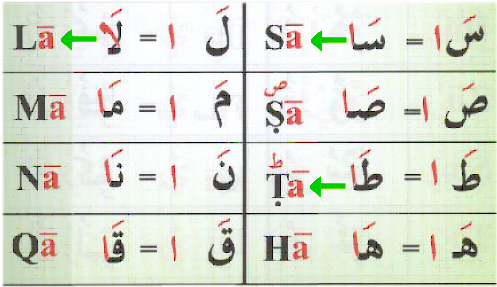 سَ ا = سَا Sā لَ ا = لَا Lā
صَ ا = صَا ص Ṣā مَ ا = مَا Mā
طَ ا = طَا ط Ṭā نَ ا = نَا Nā
هَـ ا = هَا Hā قَ ا = قَا Qā